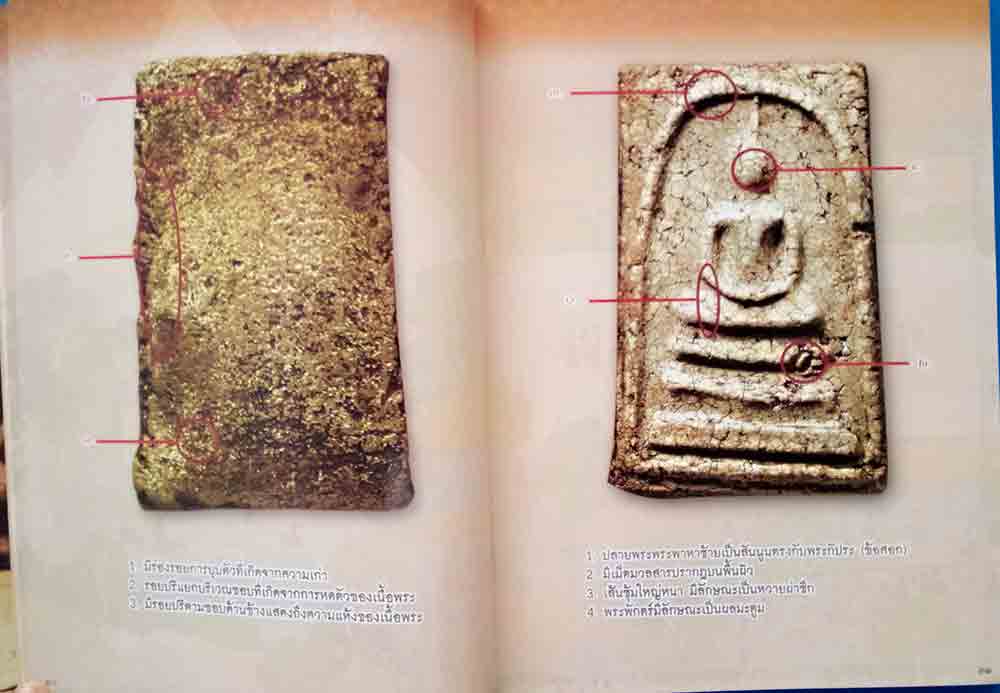 1 มีร่องรอยการยุบตัวที่เกิดจากความเก่า
2 รอยปริแยกบริเวณขอบที่เกิดจากการหดตัวของเนื้อพระ
3 มีรอยปริตามขอบด้านข้างแสดงถึงความแห้งของเนื้อพระ
1 ปลายพระพระพาหาซ้ายเป็นสันนูนตรงกับพระกัประ (ข้อศอก)
2 มีเม็ดมวลสารปรากฏบนพื้นผิว
3 เส้นซุ้มใหญ่หนา มีลักษณะเป็นหวายผ่าซีก
4 พระพักตร์มีลักษณะเป็นผลมะตูม